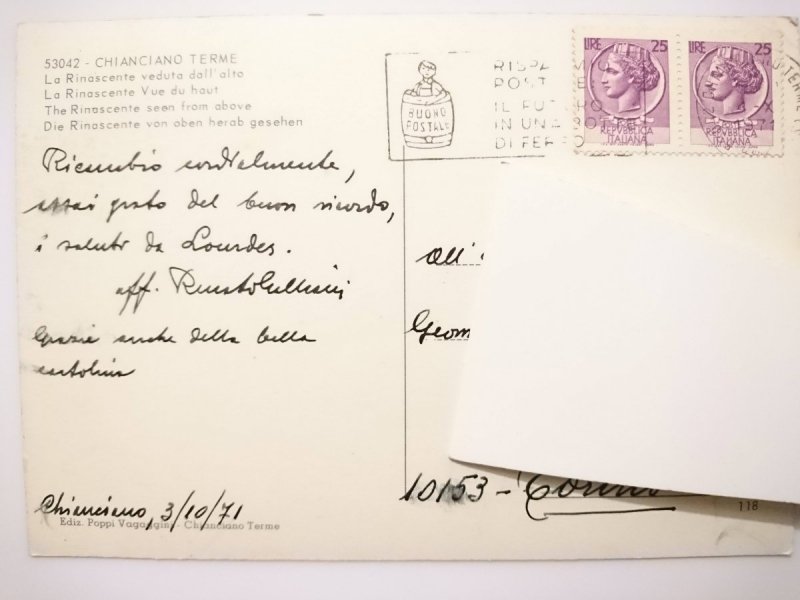 53042 - CHIANCIANO TERME
La Rinascente veduta dall'alto
La Rinascente Vue du haut
The Rinascente seen from above
Die Rinascente von oben herab gesehen
Ricambio cordialmente,
assai grato del buon ricordo,
i saluti da Lourdes.
aff.
Grazie anche della bella
cartolina
Chianciano, 3/10/71
Ediz. Poppi Vagaggini - Chianciano Terme
BUONO
POSTALE
POST
IN UNA
LIRE 25
REPVBBLICA
ITALIANA
LIRE 25
REPVBBLICA
ITALIANA
All'
Geom
10153 - Torino
118